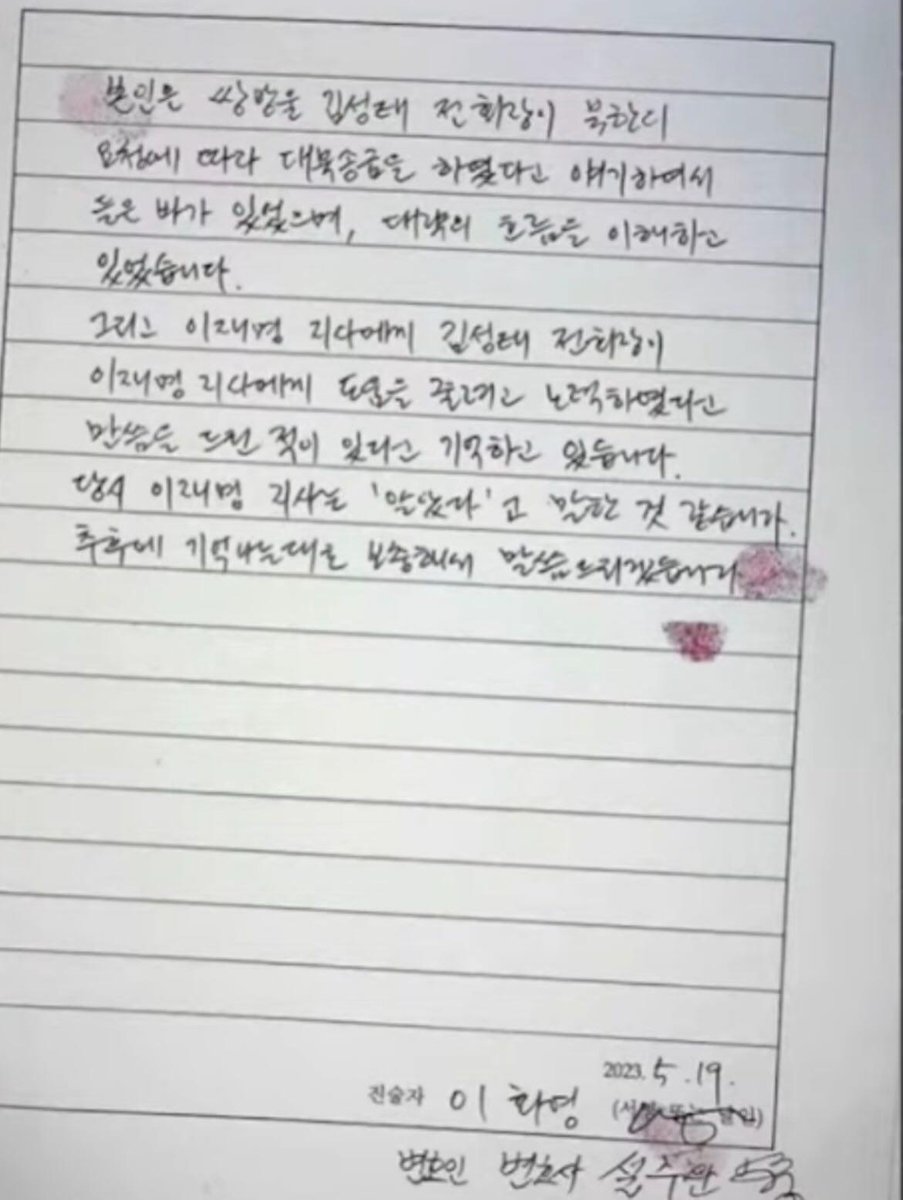 본인은 쌍방울 김성태 전회장이 북한의
요청에 따라 대북송금을 하였다고 얘기하여서
들은 바가 있었으며, 대략의 흐름을 이해하고
있었습니다.
그리고 이재명 지사에게 김성태 전회장이
이재명 지사에게 도움을 줄려고 노력하였다고
말씀을 드린 적이 있다고 기억하고 있습니다.
당시 이재명 지사는 '알았다'고 말한 것 같습니다.
추후에 기억나는대로 보충해서 말씀드리겠습니다
2023. 5. 19.
진술자 이화영 (서명 또는 날인)
변호인 변호사 설주완